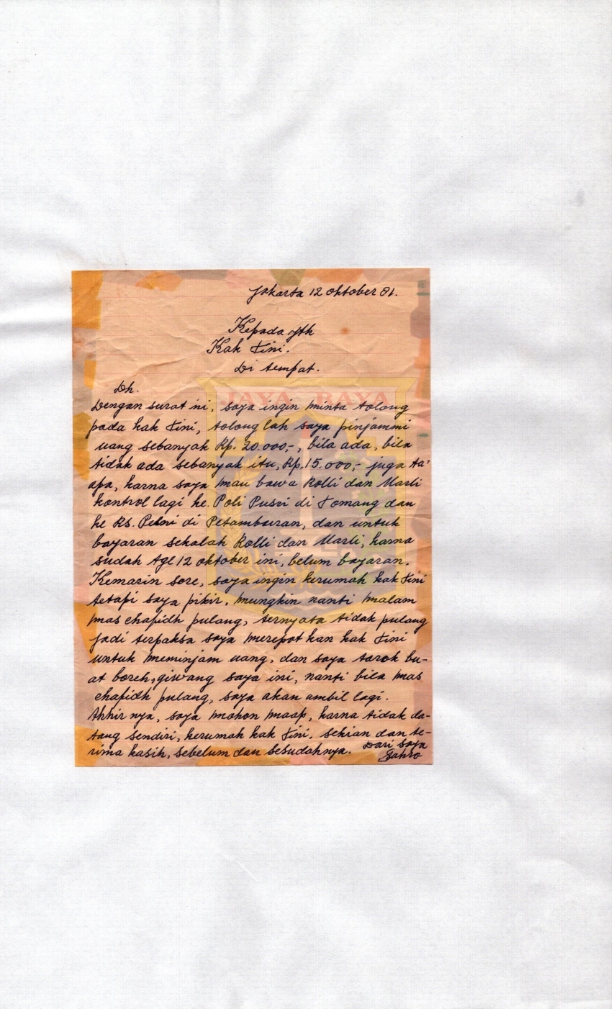 Jakarta 12 oktober 81.
Kepada yth
Kak Tini.
Di tempat.
Dh.
JAYA RAYA
Dengan surat ini, saya ingin minta tolong
pada kak Tini, tolong lah saya pinjammi
uang sebanyak Rp. 20.000,-, bila ada, bila
tidak ada sebanyak itu, Rp. 15.000,- juga ta'
apa, karna saya mau bawa Rolli dan Marli
kontrol lagi ke Poli Pusri di Tomang dan
ke RS. Pelni di Petamburan, dan untuk
bayaran sekolah Rolli dan Marli, karna
sudah tgl 12 oktober ini, belum bayaran.
Kemarin sore, saya ingin kerumah kak Tini
tetapi saya pikir, mungkin nanti malam
mas chafidh pulang, ternyata tidak pulang
jadi terpaksa saya merepot kan kak Tini
untuk meminjam uang, dan saya taroh bu-
at boreh, giwang saya ini, nanti bila mas
chafidh pulang, saya akan ambil lagi.
Akhir nya, saya mohon maap, karna tidak da-
tang sendiri, kerumah kak Tini. sekian dan te-
rima kasih, sebelum dan sesudahnya. Dari saya